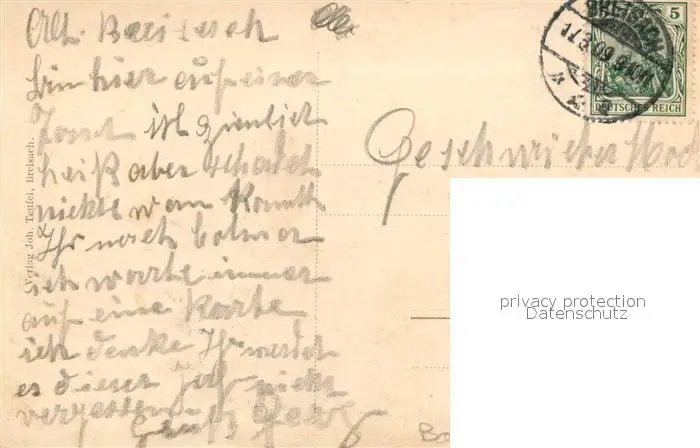 Alt Breisach
bin hier auf einer
ist ziemlich
heiß aber schadet
nichts wan komt
Ihr nach
ich warte immer
auf eine Karte
ich denke Ihr werdet
es dieses Jahr nicht
vergessen
Geschwister
BREISACH
17.3.09
5
DEUTSCHES REICH
Verlag Joh. Teufel, Breisach.
privacy protection
Datenschutz